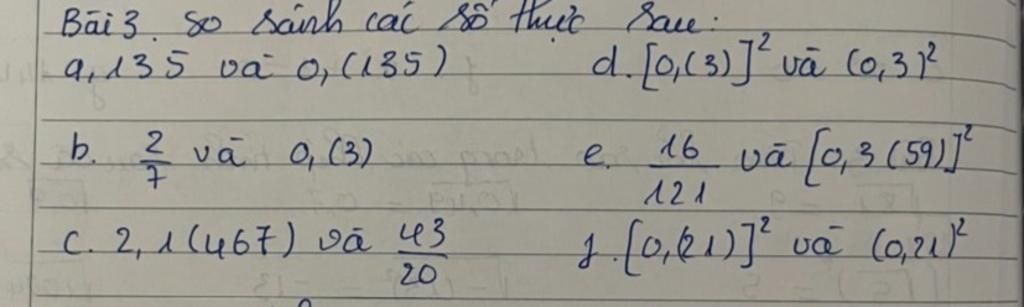 Bài 3. so sánh các số thực sau:
a, 135 và 0,(135)
d. [0,(3)]² và (0,3)²
b. 2/7 và 0,(3)
e. 16/121 và [0,3(59)]²
c. 2,1(467) và 43/20
f. [0,(21)]² và (0,21)²